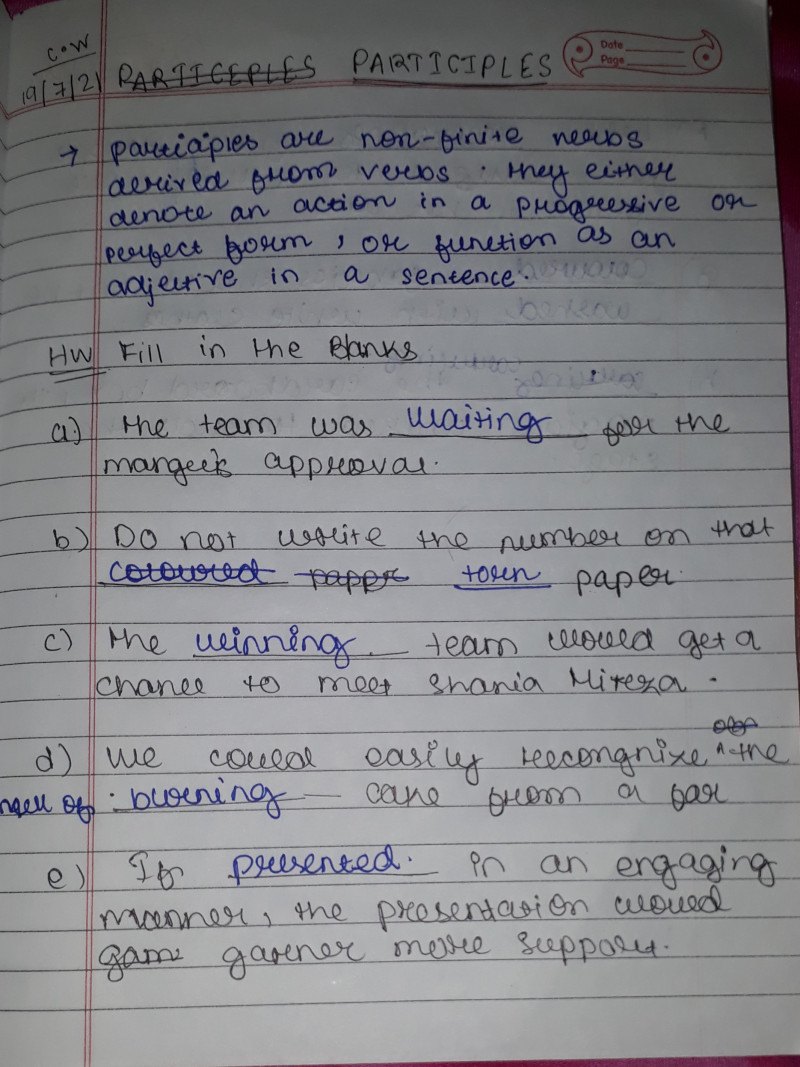 C.W
19/7/21 PARTICEPLES PARTICIPLES
Date
Page
→ participles are non-finite nerbs
derived from verbs. they either
denote an action in a progressive or
perfect form, or function as an
adjective in a sentence.
HW Fill in the Blanks
a) the team was waiting for the
mangeer's approval.
b) Do not write the number on that
coloured paper torn paper.
c) the winning team would get a
chance to meet Shania Mirza.
d) we could easily recongnize the
smell of burning cake from a far
e) If presented. in an engaging
manner, the presentation would
gam garner more support.